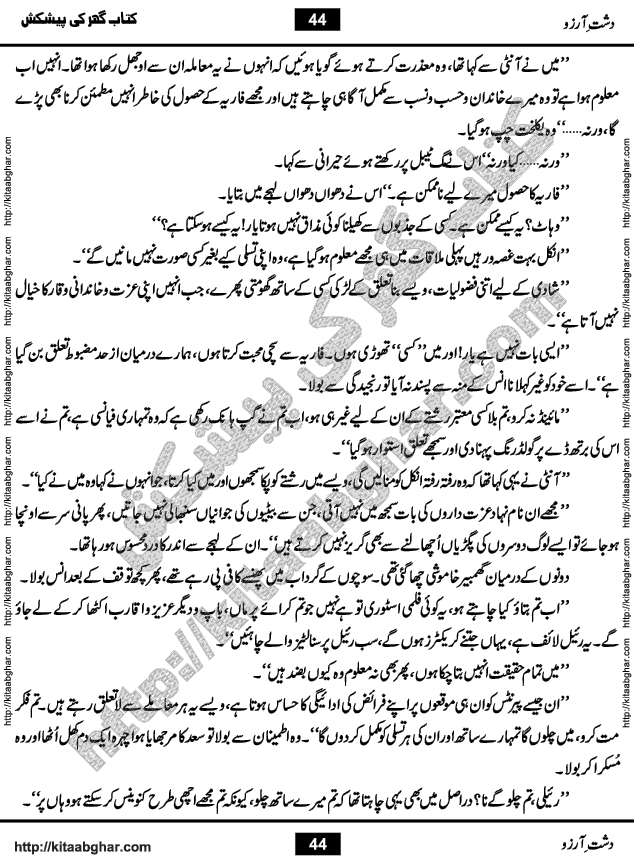 کتاب گھر کی پیشکش 44 دشتِ آرزو
’’میں نے آنٹی سے کہا تھا، وہ معذرت کرتے ہوئے گویا ہوئیں کہ انہوں نے یہ معاملہ ان سے اوجھل رکھا ہوا تھا۔ انہیں اب
معلوم ہوا ہے تو وہ میرے خاندان و حسب و نسب سے مکمل آگاہی چاہتے ہیں اور مجھے فاریہ کے حصول کی خاطر انہیں مطمئن کرنا بھی پڑے
گا، ورنہ......‘‘ وہ یکلخت چپ ہو گیا۔
’’ورنہ...... کیا ورنہ‘‘ اس نے مگ ٹیبل پر رکھتے ہوئے حیرانی سے کہا۔
’’فاریہ کا حصول میرے لیے ناممکن ہے۔‘‘ اس نے دھواں دھواں لہجے میں بتایا۔
’’وہاٹ؟ یہ کیسے ممکن ہے۔ کسی کے جذبوں سے کھیلنا کوئی مذاق نہیں ہوتا یار! یہ کیسے ہو سکتا ہے؟‘‘
’’انکل بہت غصہ ور ہیں پہلی ملاقات میں ہی مجھے معلوم ہو گیا ہے، وہ اپنی تسلی کیے بغیر کسی صورت نہیں مانیں گے‘‘۔
’’شادی کے لیے اتنی فضولیات، ویسے بنا تعلق کے لڑکی کسی کے ساتھ گھومتی پھرے، جب انہیں اپنی عزت و خاندانی وقار کا خیال
نہیں آتا ہے‘‘۔
’’ایسی بات نہیں ہے یار! اور میں ’’کسی‘‘ تھوڑی ہوں۔ فاریہ سے سچی محبت کرتا ہوں، ہمارے درمیان از حد مضبوط تعلق بن گیا
ہے‘‘۔ اسے خود کو غیر کہلانا انس کے منہ سے پسند نہ آیا تو رنجیدگی سے بولا۔
’’مائینڈ نہ کرو، تم بلا کسی معتبر رشتے کے ان کے لیے غیر ہی ہو، اب تم نے گپ ہانک رکھی ہے کہ وہ تمہاری فیانسی ہے، تم نے اسے
اس کی برتھ ڈے پر گولڈ رنگ پہنا دی اور سمجھے تعلق استوار ہو گیا‘‘۔
’’آنٹی نے یہی کہا تھا کہ وہ رفتہ رفتہ انکل کو منا لیں گی، ویسے میں رشتے کو پکا سمجھوں اور میں کیا کرتا، جو انہوں نے کہا وہ میں نے کیا‘‘۔
’’مجھے ان نام نہاد عزت داروں کی بات سمجھ میں نہیں آتی، جن سے بیٹیوں کی جوانیاں سنبھالی نہیں جاتیں، پھر پانی سر سے اونچا
ہو جائے تو ایسے لوگ دوسروں کی پگڑیاں اُچھالنے سے بھی گریز نہیں کرتے ہیں‘‘۔ ان کے لہجے سے اندر کا درد محسوس ہو رہا تھا۔
دونوں کے درمیان گھمبیر خاموشی چھا گئی تھی۔ سوچوں کے گرداب میں پھنسے کافی پی رہے تھے، پھر کچھ توقف کے بعد انس بولا۔
’’اب تم بتاؤ کیا چاہتے ہو، یہ کوئی فلمی اسٹوری تو ہے نہیں جو تم کرائے پر ماں، باپ و دیگر عزیز و اقارب اکٹھا کر کے لے جاؤ
گے۔ یہ رئیل لائف ہے، یہاں جتنے کریکٹرز ہوں گے، سب رئیل پرسنالٹیز والے چاہئیں‘‘۔
’’میں تمام حقیقت انہیں بتا چکا ہوں، پھر بھی نہ معلوم وہ کیوں بضد ہیں‘‘۔
’’ان جیسے پیرنٹس کو ان ہی موقعوں پر اپنے فرائض کی ادائیگی کا حساس ہوتا ہے، ویسے یہ ہر معاملے سے لا تعلق رہتے ہیں۔ تم فکر
مت کرو، میں چلوں گا تمہارے ساتھ اور ان کی ہر تسلی کو مکمل کر دوں گا‘‘۔ وہ اطمینان سے بولا تو سعد کا مرجھایا ہوا چہرہ ایک دم کھل اُٹھا اور وہ
مُسکرا کر بولا۔
’’رئیلی، تم چلو گے نا؟ دراصل میں بھی یہی چاہتا تھا کہ تم میرے ساتھ چلو، کیونکہ تم مجھے اچھی طرح کنوینس کر سکتے ہو وہاں پر‘‘۔
http://kitaabghar.com 44 دشتِ آرزو
http://kitaabghar.com
http://kitaabghar.com
http://kitaabghar.com
http://kitaabghar.com
http://kitaabghar.com
http://kitaabghar.com
http://kitaabghar.com
http://kitaabghar.com
http://kitaabghar.com
http://kitaabghar.com
http://kitaabghar.com
http://kitaabghar.com
کتاب گھر کی پیشکش
http://kitaabghar.com